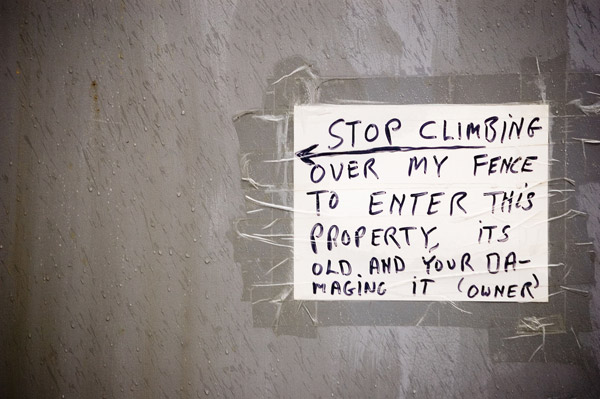 STOP CLIMBING
OVER MY FENCE
TO ENTER THIS
PROPERTY, ITS
OLD AND YOUR DA-
MAGING IT (OWNER)